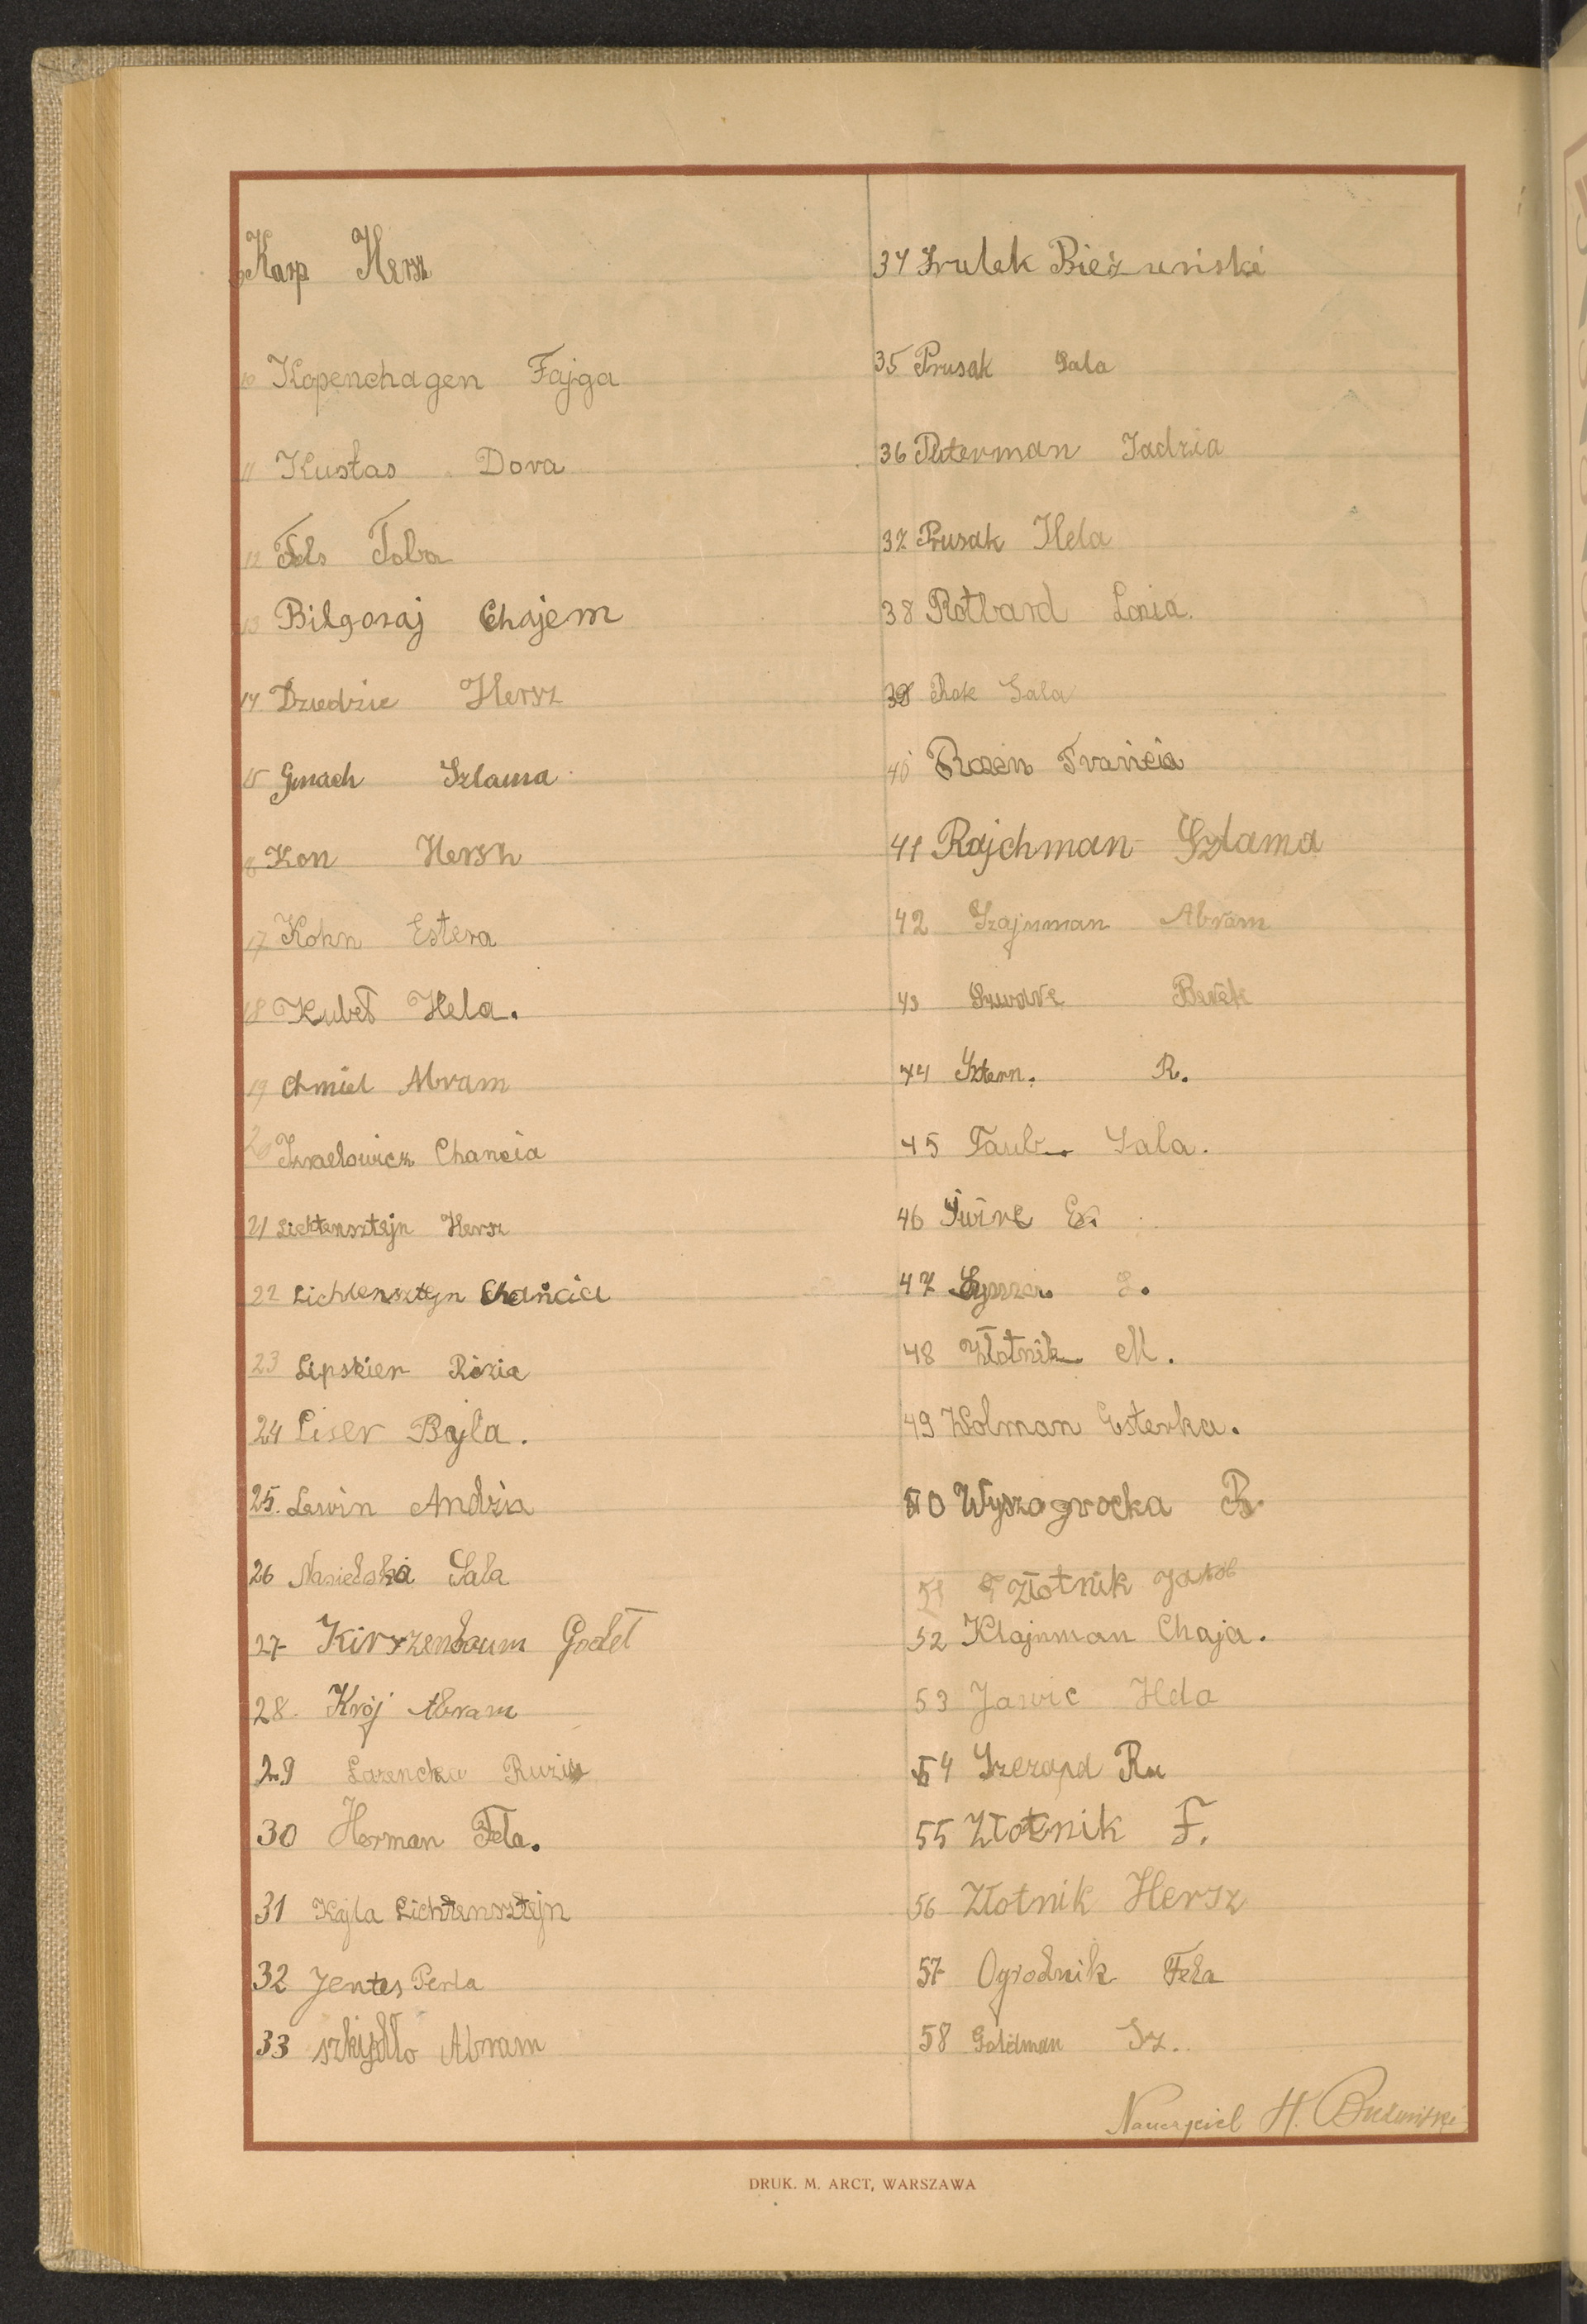 9 Karp Hersz
10 Kopenchagen Fajga
11 Kustas Dora
12 Fels Toba
13 Bilgoraj Chajem
14 Dziedzic Hersz
15 Gmach Szlama
16 Kon Hersh
17 Kohn Estera
18 Kubet Hela.
19 Chmiel Abram
20 Izraelowicz Chancia
21 Lichtensztejn Hersz
22 Lichtensztejn Chańcia
23 Lipskier Rózia
24 Liser Bajla.
25. Lewin Andzia
26 Nasielska Sala
27 Kirszenbaum Godel
28. Krój Abram
29 Ruzia
30 Herman Fela.
31 Kajla Lichtensztejn
32 Jentes Perla
33 szkijdło Abram
34 Srulek Bieżuński
35 Prusak Sala
36 Pluterman Jadzia
37 Prusak Hela
38 Rotbard Lonia.
39 Rok Sala
40 Rozen Frańcia
41 Rajchman Szlama
42 Szajnman Abram
43 Szwarc Berek
44 Sztern. R.
45 Taub. Sala.
46 Es.
47 S.
48 Złotnik M.
49 Wolman Esterka.
50 Wyszogrocka R.
51 Złotnik Jakób
52 Klajnman Chaja.
53 Jawic Hela
54 Szerapd Ru
55 Złotnik F.
56 Złotnik Hersz
57 Ogrodnik Fela
58 Goldman Sz.
Nauczyciel H. Bieżuński
DRUK. M. ARCT, WARSZAWA